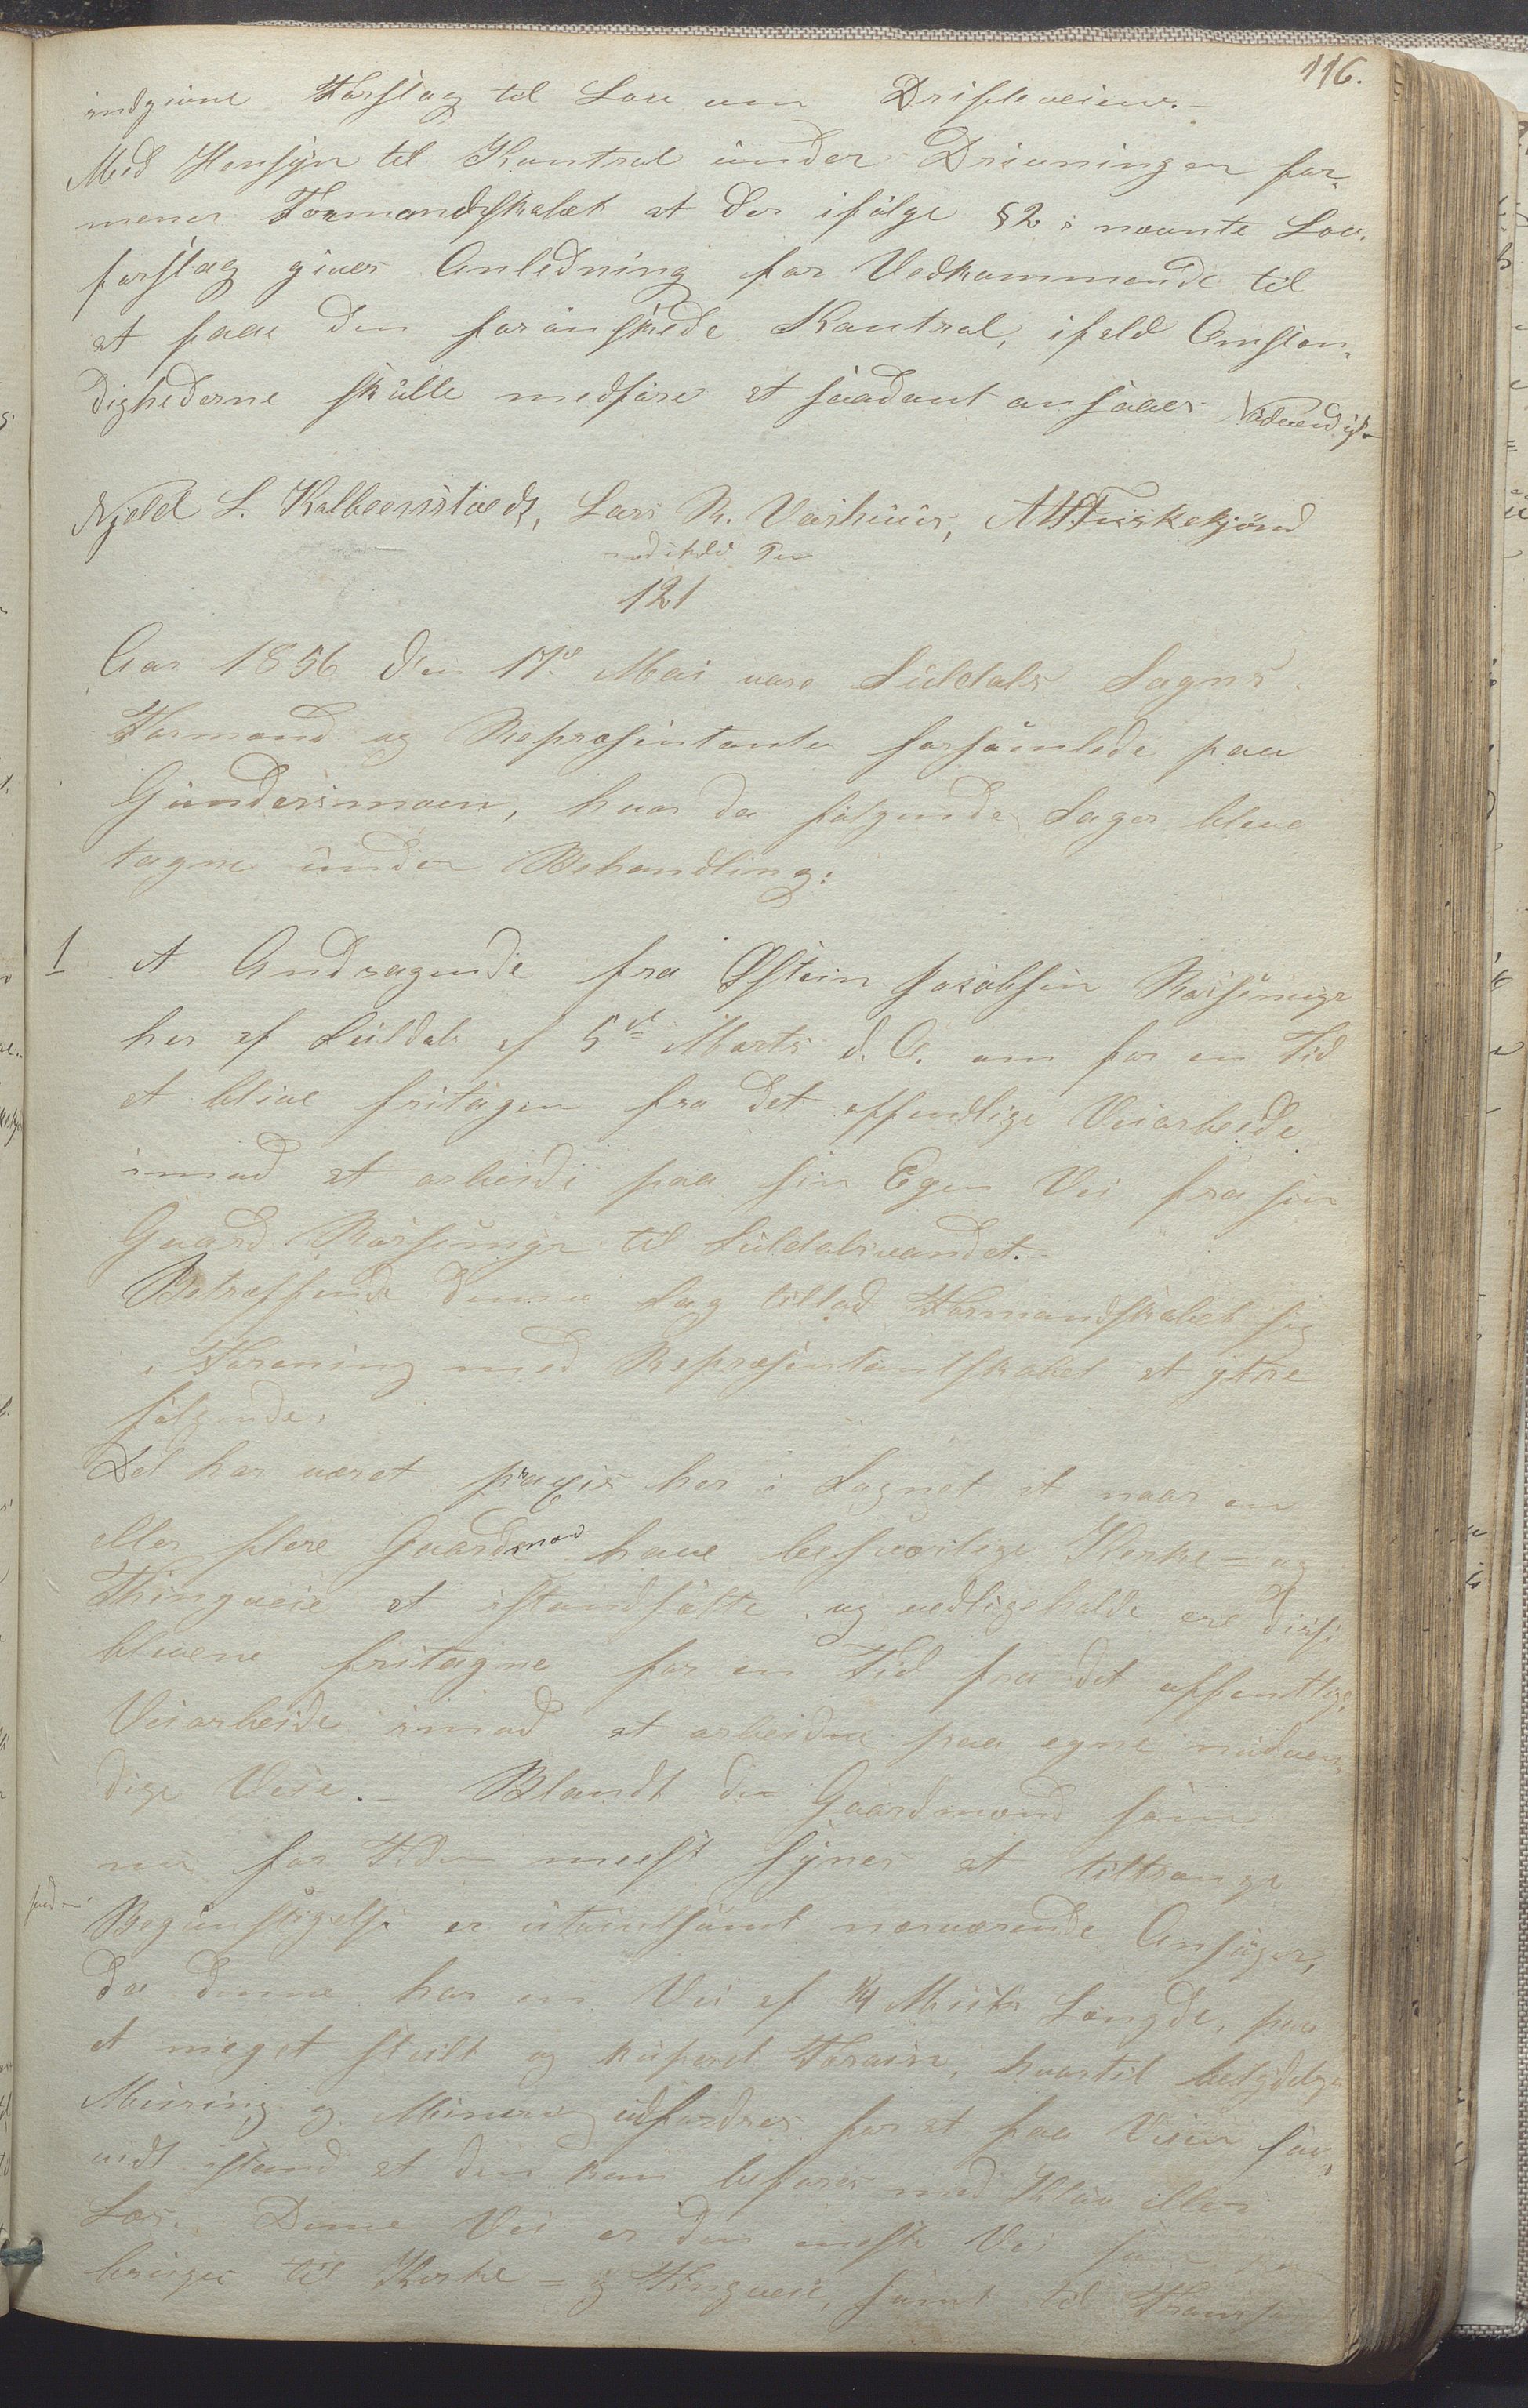 116.
indgivne Forslag til Lov om Drifteveiene.-
Med Hensÿn til Kontrol under Drivningen for-
mener Formandskabet at der ifölge §2 i nævnte Lov-
forslag gives Anledning for Vedkommende til
at faae den forönskede Kontrol, ifald Omstæn-
dighederne skulle medföre at saadant ansaaes Nödvendigt.-
Njeld L. Kolbeenstvedt, Lars R. Vashuus, AHFiskekjönd
med ihold Pen
121
Aar 1856 den 17de Mai vare Suldals Sogns
Formænd og Repræsentanter forsamlede paa
Gundersmoen, hvor da fölgende Sager bleve
tagne under Behandling:
1 Et Andragende fra Østein Jacobsen Kaisemyr
her af Suldal af 5te Marts d. A. om for en Tid
at blive fritagen fra det offentlige Veiarbeide
imod at arbeide paa sin Egen Vei fra sin
Gaard til Suldalsvandet.-
Betræffende denne Sag tillod Formandskabet sig
i Forening med Repræsentantskabet at ÿttre
fölgende:
Det har været praxis her i Sognet at naar en
eller flere Gaardmænd have besværlige Kirke- og
Thingveie at istandsætte og vedligeholde ere disse
blevene fritagne for en Tid fra det offentlige
Veiarbeide imod at arbeidne paa egne nödven-
dige Veie.- Blandt de Gaardmænd som
nu for Tiden meest sÿnes at tiltrænge
saadan Begunstigelse er utvivlsomt nærværende Ansöger,
da denne har en Vei af 1/4 Miils Længde, paa
et meget steilt og kuperet Terain, hvortil betydelige
Muring og Minering udfordres for at faa Veien saa-
vidt istand at den kan befares med Klöv eller
Læs. Denne Vei er den eneste Vei som
bruges til Kirke- og Thingveie, samt til